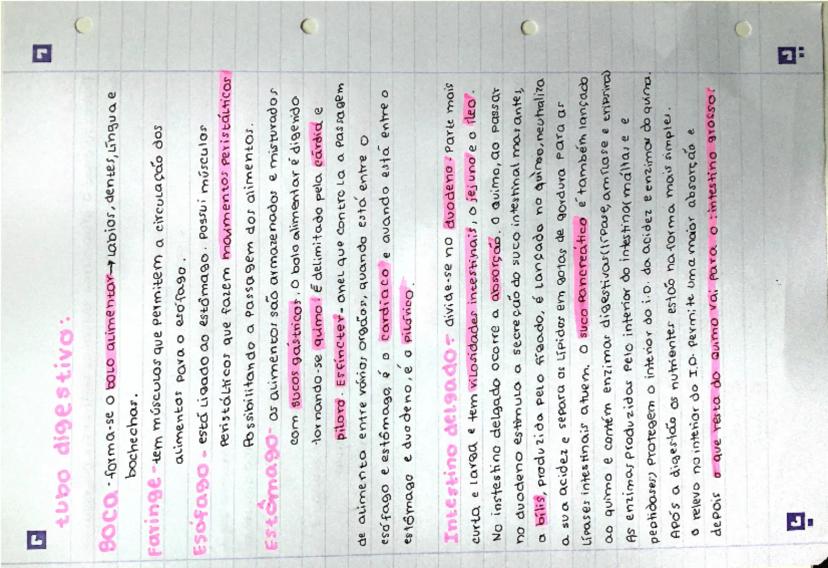 tubo digestivo:
Boca - forma-se o bolo alimentar → lábios, dentes, língua e
bochechas.
Faringe - tem músculos que permitem a circulação dos
alimentos para o esófago.
Esófago - está ligado ao estômago. Possui músculos
peristálticos que fazem movimentos peristálticos
possibilitando a passagem dos alimentos.
Estômago - os alimentos são armazenados e misturados
com sucos gástricos. O bolo alimentar é digerido
tornando-se quimo. É delimitado pela cárdia e
piloro. Esfíncter - anel que controla a passagem
de alimento entre vários orgãos, quando está entre o
esófago e estômago, é o cardíaco e quando está entre o
estômago e duodeno, é o pilórico.
Intestino delgado - divide-se no duodeno. Parte mais
curta e larga e tem vilosidades intestinais, o jejuno e o íleo.
No instestino delgado ocorre a absorção. O quimo, ao passar
no duodeno estimula a secreção do suco intestinal mas antes,
a bílis, produzida pelo fígado, é lançada no quimo, neutraliza
a sua acidez e separa os lípidos em gotas de gordura para as
lipases intestinais atuem. O suco pancreático é também lançado
ao quimo e contém enzimas digestivas (lipase, amílase e
As enzimas produzidas pelo interior do intestino (maltase e
peptidases) protegem o interior do i.D. da acidez e enzimas do quimo.
Após a digestão os nutrientes estão na forma mais simples.
O relevo no interior do I.D. permite uma maior absorção e
depois o que resta do quimo vai para o intestino grosso.